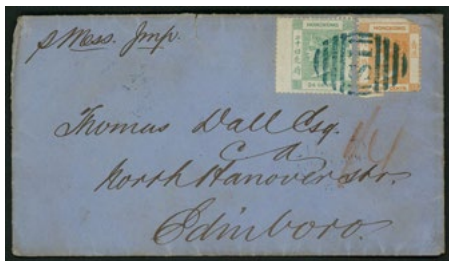 p Mess. Imp.
HONGKONG
HONGKONG
Thomas Dall Esq.
North Hanover str.
Edinboro.